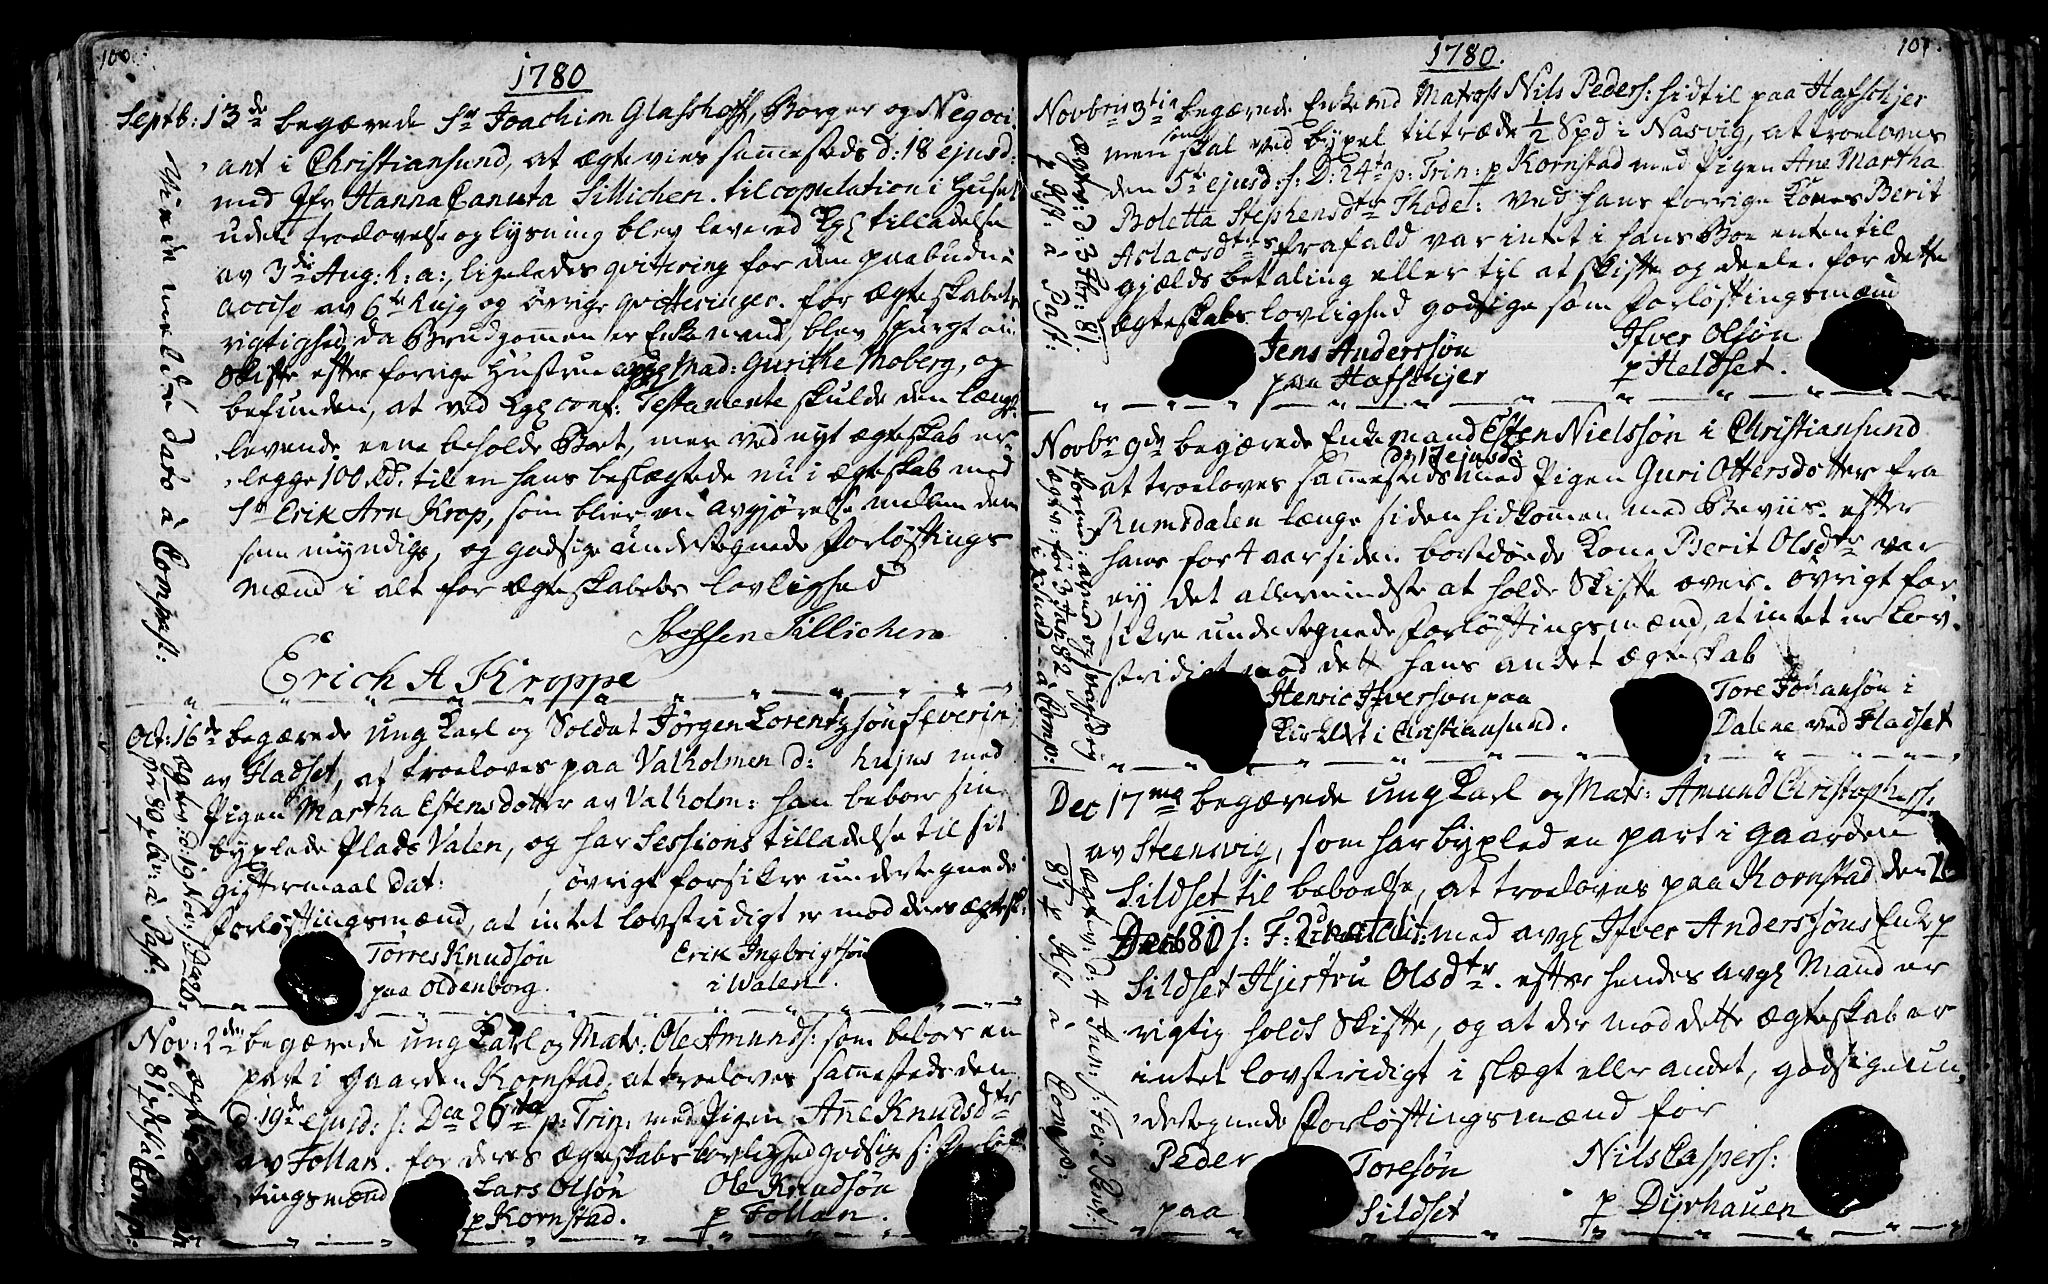 100.
1780
Septb: 13de begærede Sr Joachim Glasshoff, Borger og Negoci-
ant i Christiansund, at ægtevies sammesteds d: 18 ejusd:
med Jfr Hanna Canuta Sillichen. til copulation i Huset
uden troelovelse og lysning blev levered Kgl tilladelse
av 3die Aug: h: a:, ligeledes qvittering for den paabudne
accise av 6te hujg og övrige qvitteringer. for ægteskabets
rigtighed, da Brudgommen er Enkemand, blev spurgt om
Skifte efter forrige Hustrue Mad: Gurithe Moberg, og
befunden, at ved Kgl conf: Testamente skulde den længst
levende eene beholde Boet, men ved nyt ægteskab er-
legge 100 Rd. til en hans beslægtede nu i ægteskab med
Sr Erik Arn Krop, som blier en avgjørelse mellem dem
som myndige, og godsige undertegnede Forløftings
mænd i alt for ægteskabets lovlighed
Steffen Sillichen
Erich A Kroppe
Viede under dato à Consist:
Oct: 16de begærede Ung Karl og Soldat Jörgen Lorentzsön Severin
av Stadset, at troeloves paa Valholmen d: hujus med
Pigen Martha Estensdotter av Valholm: han beboer sin
byxlede Plads Valen, og har Sessions tilladelse til sit
giftermaal dat: , övrigt forsikre undertegnede
Forløftingsmænd, at intet lovstridigt er mod deres ægtesk:
Torres Knudsön
paa Oldenborg.
Erik Ingbrigtsön
i Walen.
Nov: 2den begærede ung Karl og Mats: Ole Amunds: som beboer en
part i gaarden Kornstad, at troeloves sammesteds den
d: 19de ejusd: s: Dca 26ta p: Trin: med Pigen Ane Knudsdtr
av Follan. for deres ægteskabs lovlighed godsige s: Forlöf
tingsmænd
Lars Olsön
p Kornstad.
Ole Knudsön
p Follan.
101.
1780.
Novbr 3tia begærede Enkemd Matros Nils Peders: hidtil paa Hafschjer
men som skal ved bÿxel tiltræde 1/2 Spd i Nasvig, at troeloves
den 5te ejusd: s: D: 24ta p: Trin: p Kornstad med Pigen Ane Martha
Boletta Stephensdtr Thode: Ved hans forrige Kones Berit
Aslacsdtrs frafald var intet i hans Boe enten til
gjælds betaling eller til at skifte og deele. for dette
ægteskabs lovlighed godsige som Forløftingsmænd
Jens Anderssön
paa Hafschjer
Ifver Olsön
p Heldset.
Novbr 9de begærede Enkemand Esten Nielssön i Christiansund
d: 17 ejusd:
at troeloves sammesteds med Pigen Guri Ottersdotter fra
Rumsdalen længe siden hidkommen med Beviis. efter
hans for 4 aar siden bortdöde Kone Berit Olsdtr var
ey det allermindste at holde Skifte over. övrigt for
sikre undertegnede Forløftingsmænd, at intet er lov-
stridigt mod dette hans andet ægteskab
Henric Ifversön paa
Kirkl: i Christiansund.
Tore Johansön i
Dalene ved Stadset
Dec 17ma begærede ung Karl og Mats: Amund Christophers:
av Steensvig, som har byxled en part i gaarden
Sildset til beboelse, at troeloves paa Kornstad den 26
Decb: 80 s: F: 2 natalit: med avgl Ifver Anderssöns Enke p
Sildset Hjertru Olsdtr. efter hendes avgl Mand er
rigtig holdt Skifte, og at der mod dette ægteskab er
intet lovstridigt i slægt eller andet, godsige un-
dertegnede Forløftingsmænd for
Peder Toresön
paa Sildset
Nils Caspers:
p Dyrhauen